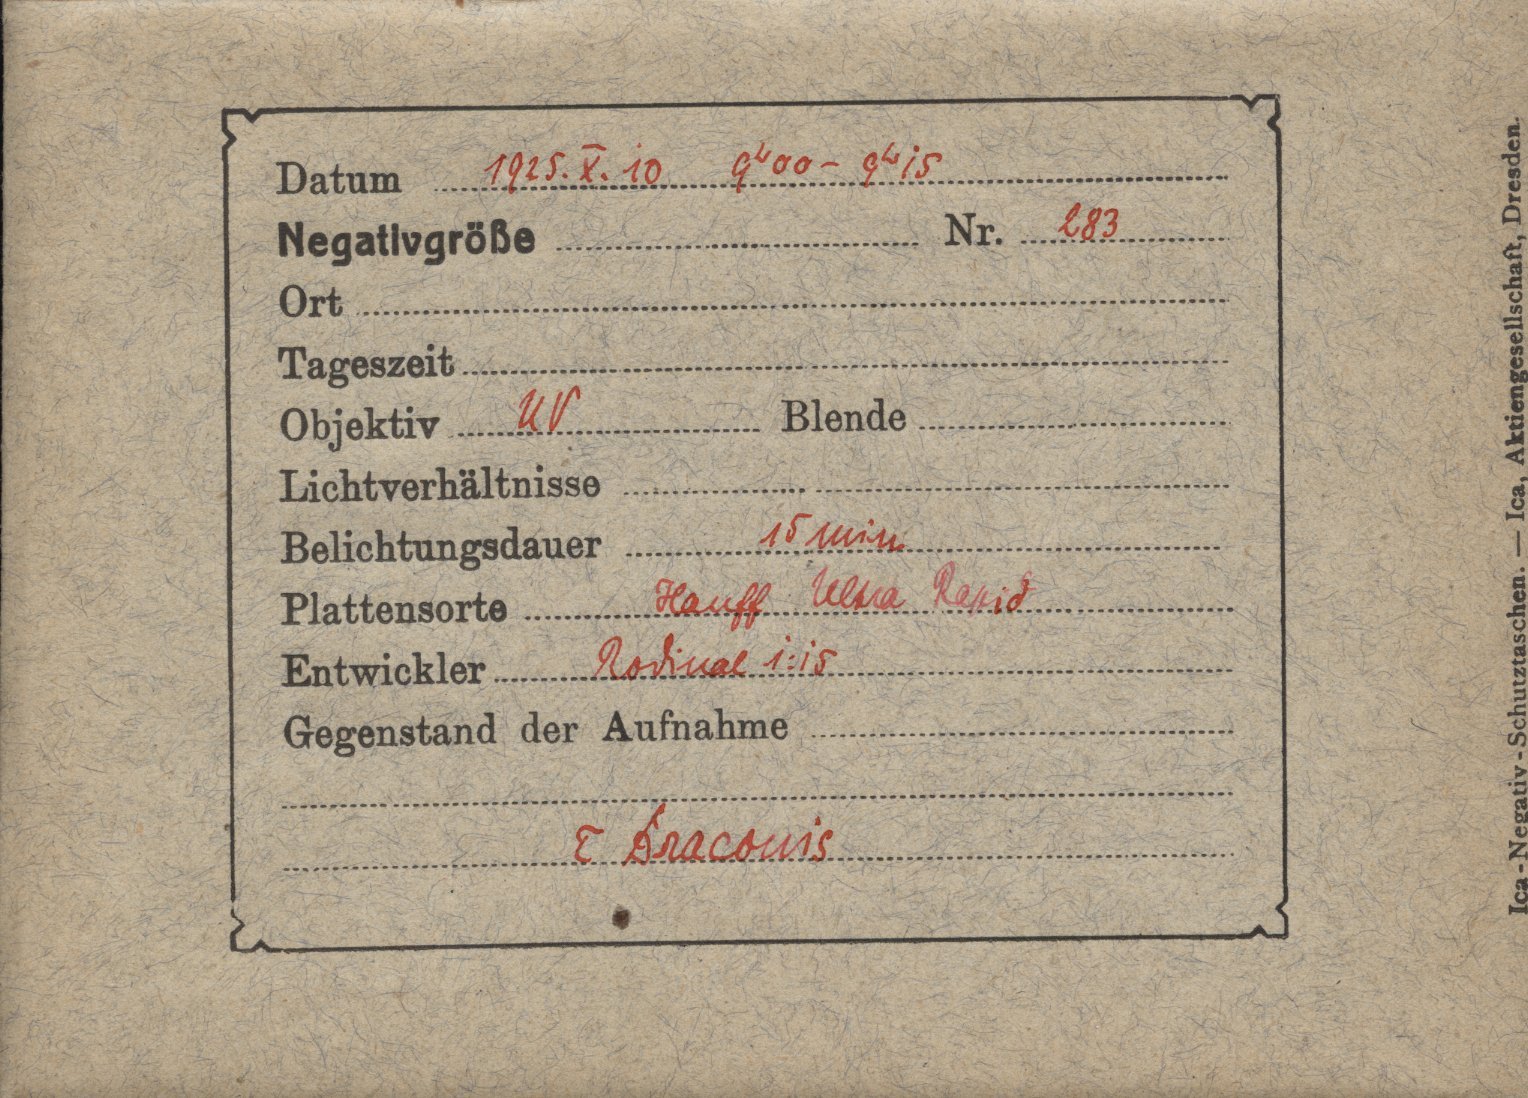 Datum 1925. X. 10 9ʰ00 – 9ʰ15
Negativgröße Nr. 283
Ort
Tageszeit
Objektiv UV Blende
Lichtverhältnisse
Belichtungsdauer 15 min
Plattensorte Hauff Ultra Rapid
Entwickler Rodinal 1:15
Gegenstand der Aufnahme
τ Draconis
Ica-Negativ-Schutztaschen. — Ica, Aktiengesellschaft, Dresden.